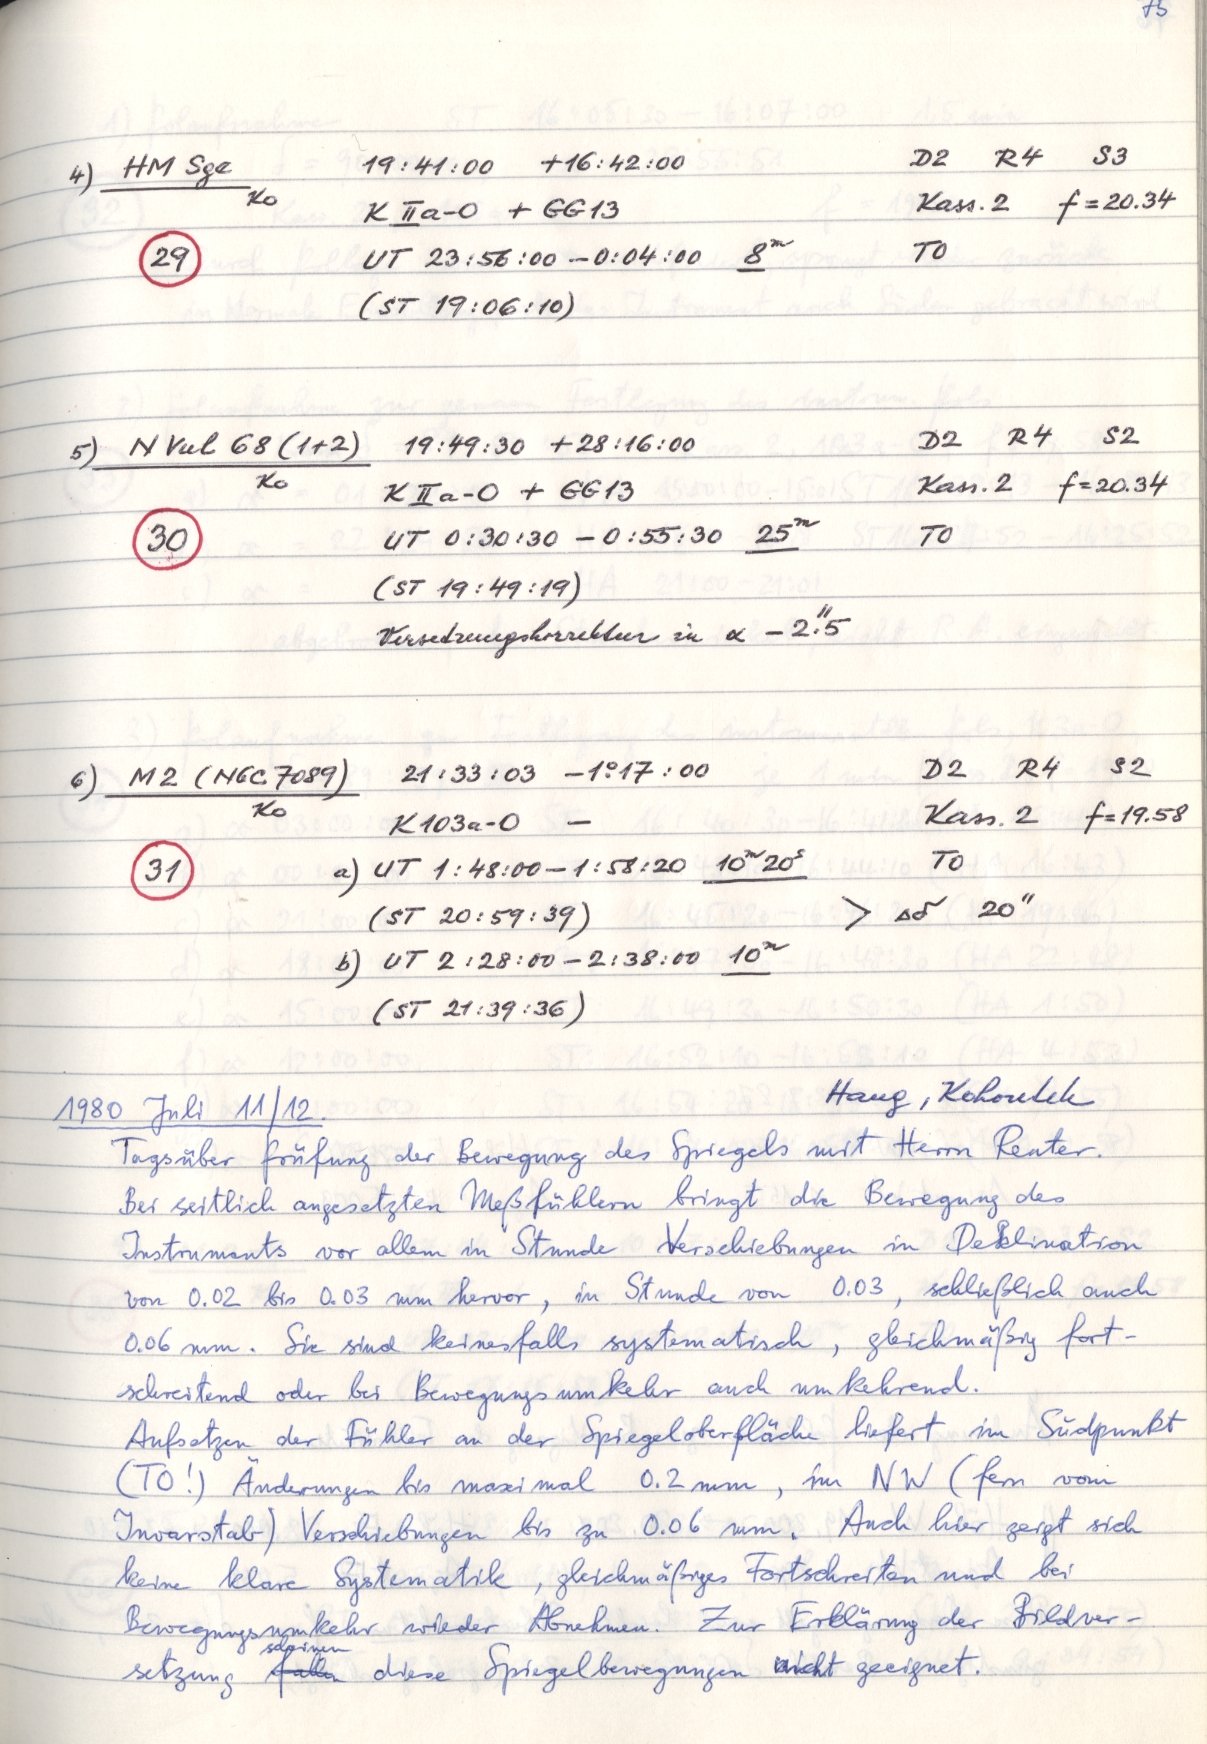 75
4) HM Sge 19:41:00 +16:42:00 D2 R4 S3
Ko K IIa-O + GG13 Kass. 2 f = 20.34
29 UT 23:56:00 – 0:04:00 8m TO
(ST 19:06:10)
5) N Vul 68 (1+2) 19:49:30 +28:16:00 D2 R4 S2
Ko K IIa-O + GG13 Kass. 2 f = 20.34
30 UT 0:30:30 – 0:55:30 25m TO
(ST 19:49:19)
Versetzungskorrektur in α – 2."5
6) M2 (NGC 7089) 21:33:03 –1°17:00 D2 R4 S2
Ko K103a-O – Kass. 2 f = 19.58
31 a) UT 1:48:00 – 1:58:20 10m 20s TO
(ST 20:59:39) > Δδ 20"
b) UT 2:28:00 – 2:38:00 10m
(ST 21:39:36)
1980 Juli 11/12. Haug, Kohoutek
Tagsüber Prüfung der Bewegung des Spiegels mit Herrn Reuter.
Bei seitlich angesetzten Meßfühlern bringt die Bewegung des
Instruments vor allem in Stunde Verschiebungen in Deklination
von 0.02 bis 0.03 mm hervor, in Stunde von 0.03, schließlich auch
0.06 mm. Sie sind keinesfalls systematisch, gleichmäßig fort-
schreitend oder bei Bewegungsumkehr auch umkehrend.
Aufsetzen der Fühler an der Spiegeloberfläche liefert im Südpunkt
(TO!) Änderungen bis maximal 0.2 mm, im NW (fern vom
Invarstab) Verschiebungen bis zu 0.06 mm. Auch hier zeigt sich
keine klare Systematik, gleichmäßiges Fortschreiten und bei
Bewegungsumkehr wieder Abnehmen. Zur Erklärung der Bildver-
setzung scheinen diese Spiegelbewegungen nicht geeignet.